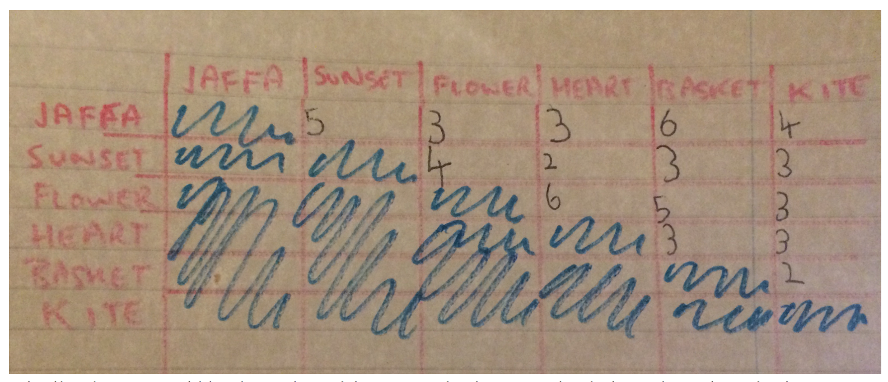 JAFFA SUNSET FLOWER HEART BASKET KITE
JAFFA 5 3 3 6 4
SUNSET 4 2 3 3
FLOWER 6 5 3
HEART 3 3
BASKET 2
KITE